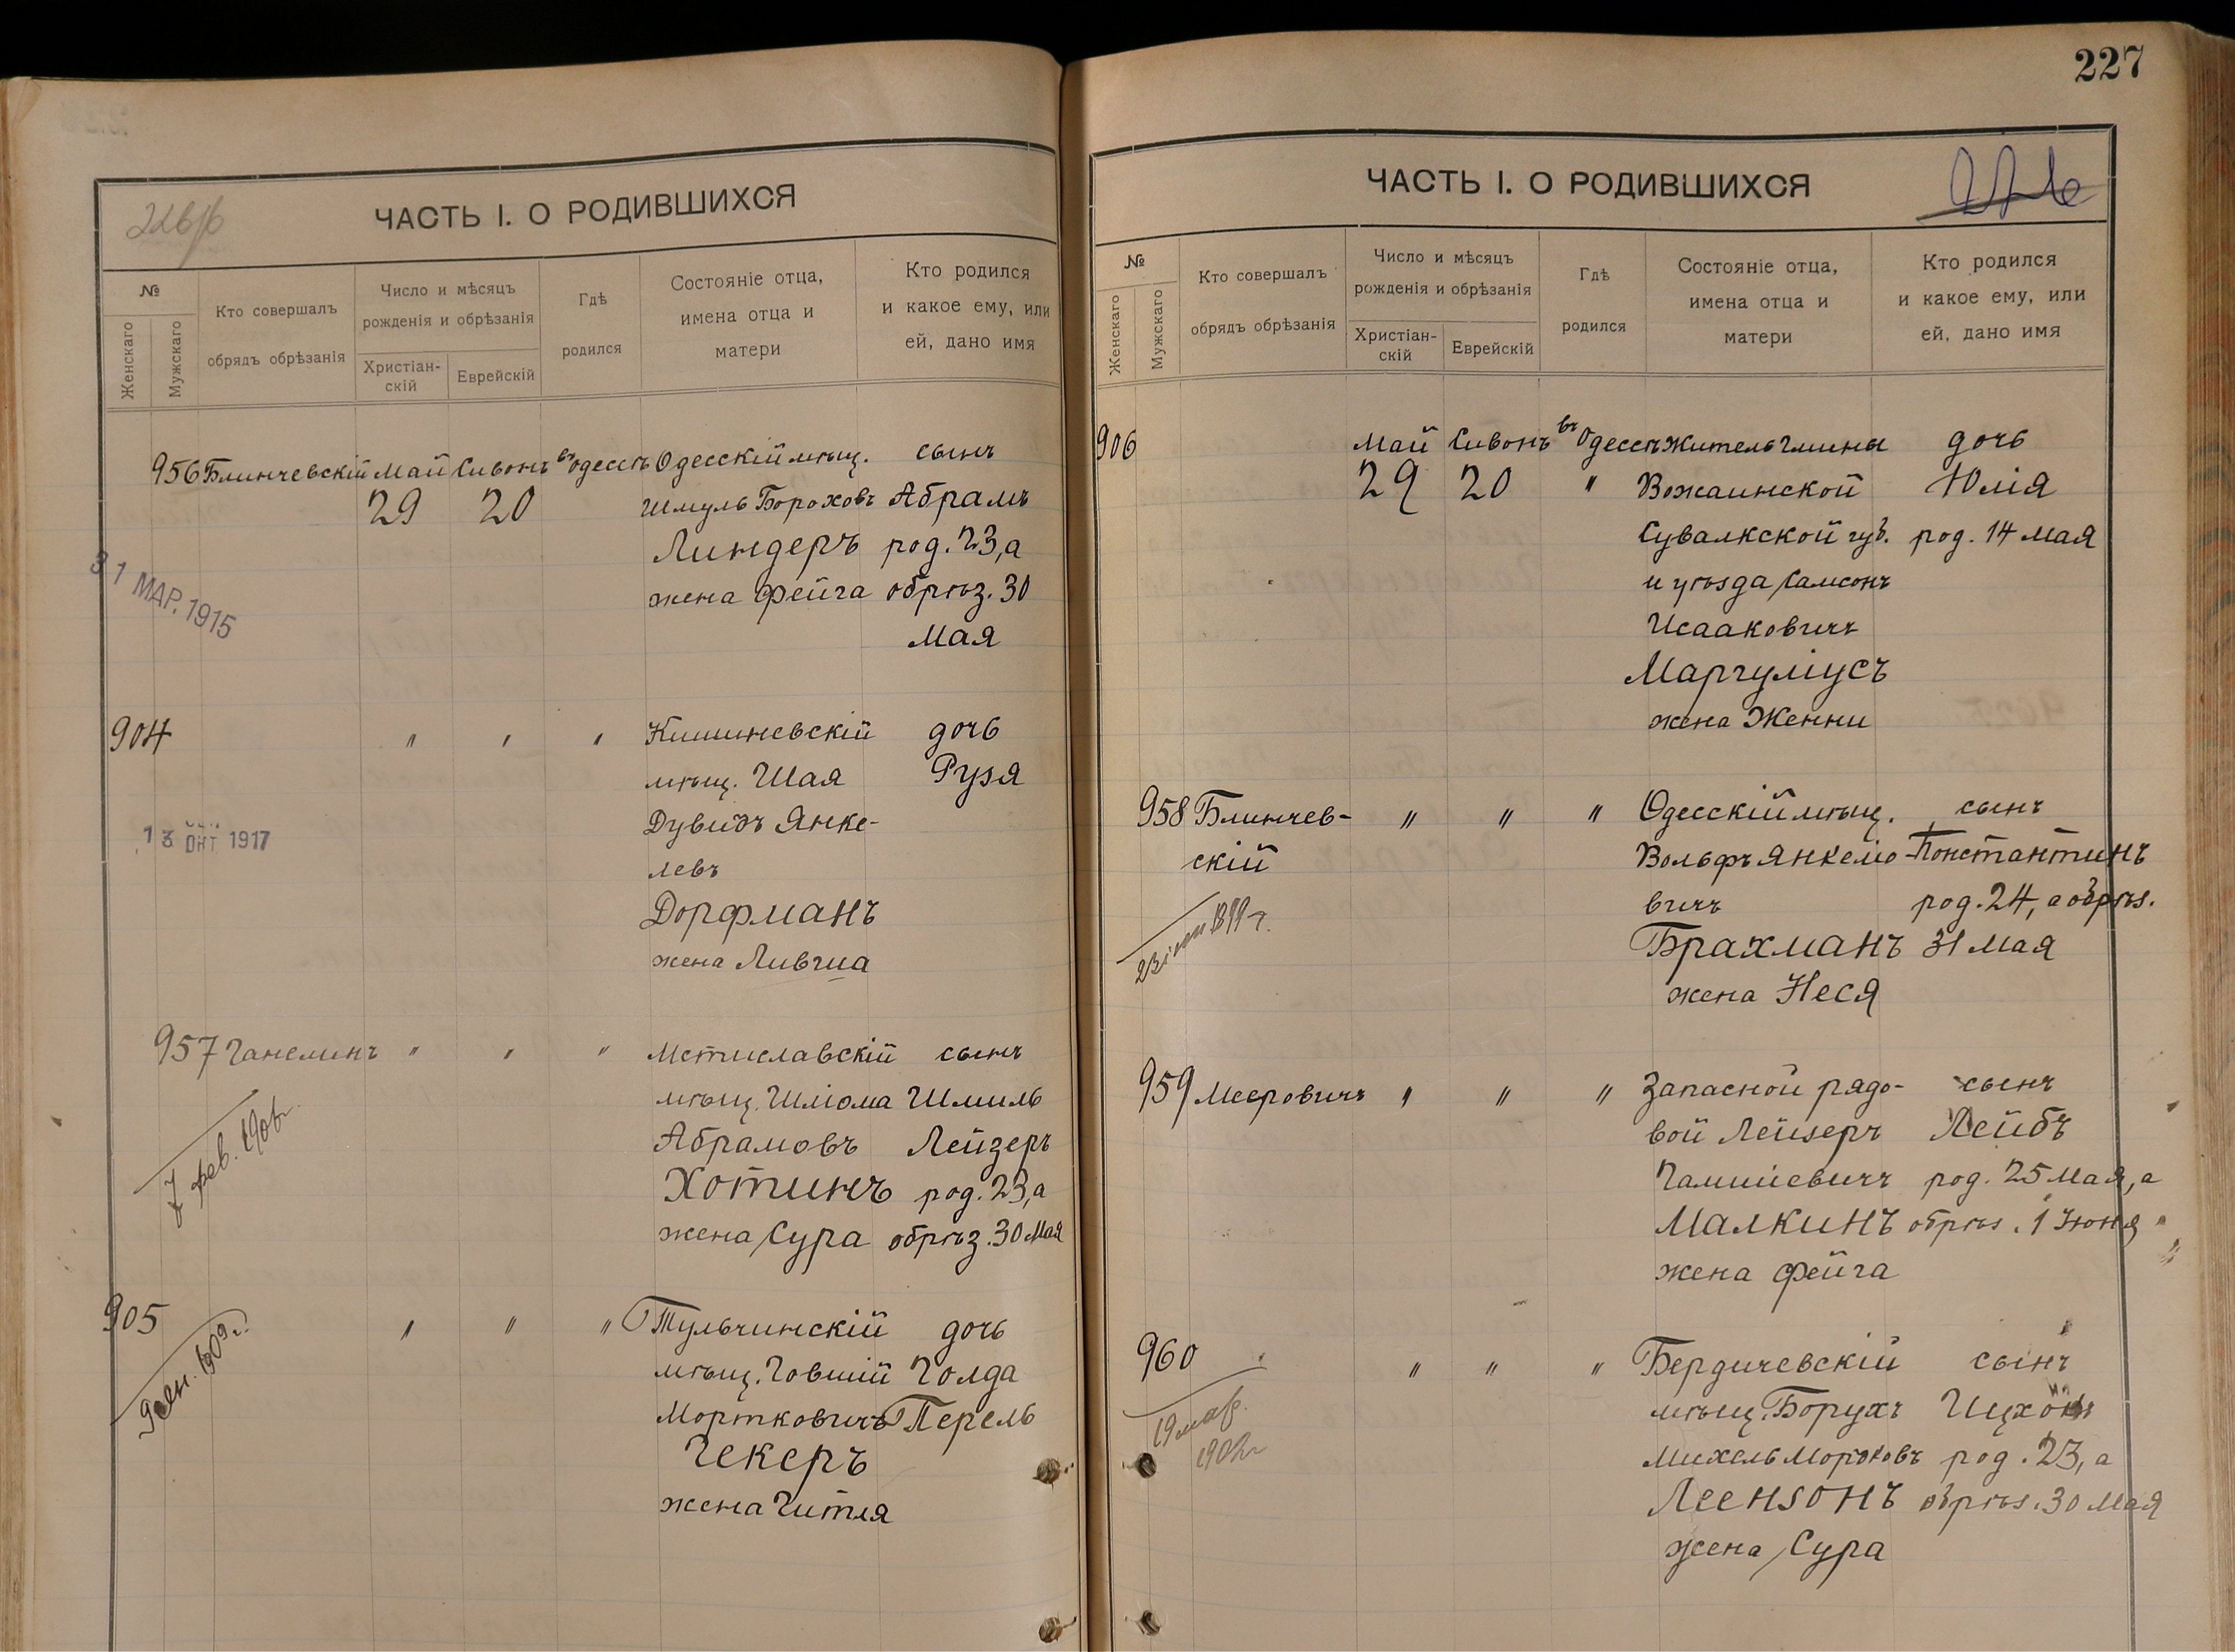 227
ЧАСТЬ I. О РОДИВШИХСЯ
№
Женскаго
Мужскаго
Кто совершалъ
обрядъ обрѣзанія
Число и мѣсяцъ
рожденія и обрѣзанія
Христіан-
скій
Еврейскій
Гдѣ
родился
Состояніе отца,
имена отца и
матери
Кто родился
и какое ему, или
ей, дано имя
956 Блинчевскій Май Сивонъ въ Одессѣ Одесскій мѣщ. сынъ
29 20 Шмуль Бороховъ Абрамъ
Линдеръ род. 23, а
жена Фейга обрѣз. 30
Мая
31 МАР. 1915
904 " " " Кишиневскій дочь
мѣщ. Шая Рузя
Дувидъ Янке-
левъ
Дорфманъ
жена Ливша
13 ОКТ 1917
957 Ганелинъ " " " Мстиславскій сынъ
мѣщ. Шліома Шмиль
Абрамовъ Лейзеръ
Хотинъ род. 23, а
жена Сура обрѣз. 30 Мая
7 фев. 1908 г.
905 " " " Тульчинскій дочь
мѣщ. Говшій Голда
Мортковичъ Перель
Гекеръ
жена Гитля
ЧАСТЬ I. О РОДИВШИХСЯ
№
Женскаго
Мужскаго
Кто совершалъ
обрядъ обрѣзанія
Число и мѣсяцъ
рожденія и обрѣзанія
Христіан-
скій
Еврейскій
Гдѣ
родился
Состояніе отца,
имена отца и
матери
Кто родился
и какое ему, или
ей, дано имя
906 Май Сивонъ въ Одессѣ Житель гмины дочь
29 20 " Вожаинской Юлія
Сувалкской губ. род. 14 Мая
и уѣзда Самсонъ
Исааковичъ
Маргуліусъ
жена Женни
958 Блинчев- " " " Одесскій мѣщ. сынъ
скій Вольфъ Янкеліо- Константинъ
вичъ род. 24, а обрѣз.
Брахманъ 31 Мая
жена Неся
959 Мееровичъ " " " Запасной рядо- сынъ
вой Лейзеръ Лейбъ
Гамшіевичъ род. 25 Мая, а
Малкинъ обрѣз. 1 Іюня
жена Фейга
960 " " " Бердичевскій сынъ
мѣщ. Борухъ
Михель Морковъ род. 23, а
Леензонъ обрѣз. 30 Мая
жена Сура
19 мар.